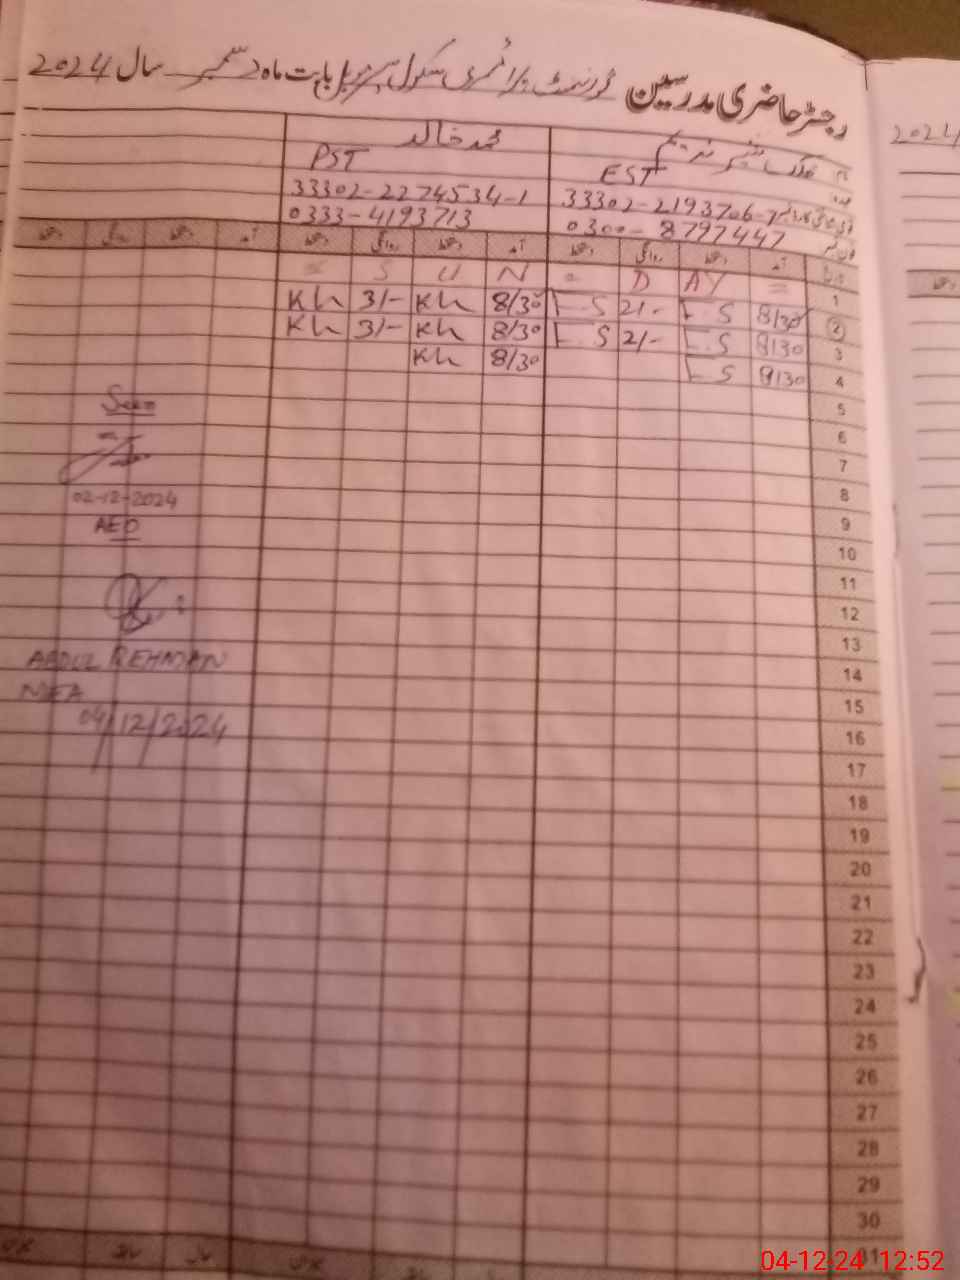 رجسٹر حاضری مدرسین گورنمنٹ پرائمری سکول بابت ماہ دسمبر سال 2024
2024
نام محمد خالد
EST PST
33302-2193706-7 33302-2274534-1
فون نمبر 0300-8797447 0333-4193713
تاریخ آمد دستخط روانگی دستخط آمد دستخط روانگی دستخط آمد دستخط روانگی دستخط
1 = AY D = N U S =
2 8/30 F.S 2/- F.S 8/30 Kh 3/- Kh
3 8/30 F.S 2/- F.S 8/30 Kh 3/- Kh
4 8/30 F.S 8/30 Kh
5
Seen
6
7
8
02-12-2024
9
AEO
10
11
12
13
ABDUL REHMAN
14
MEA
15
04/12/2024
16
17
18
19
20
21
22
23
24
25
26
27
28
29
30
31
04-12-24 12:52